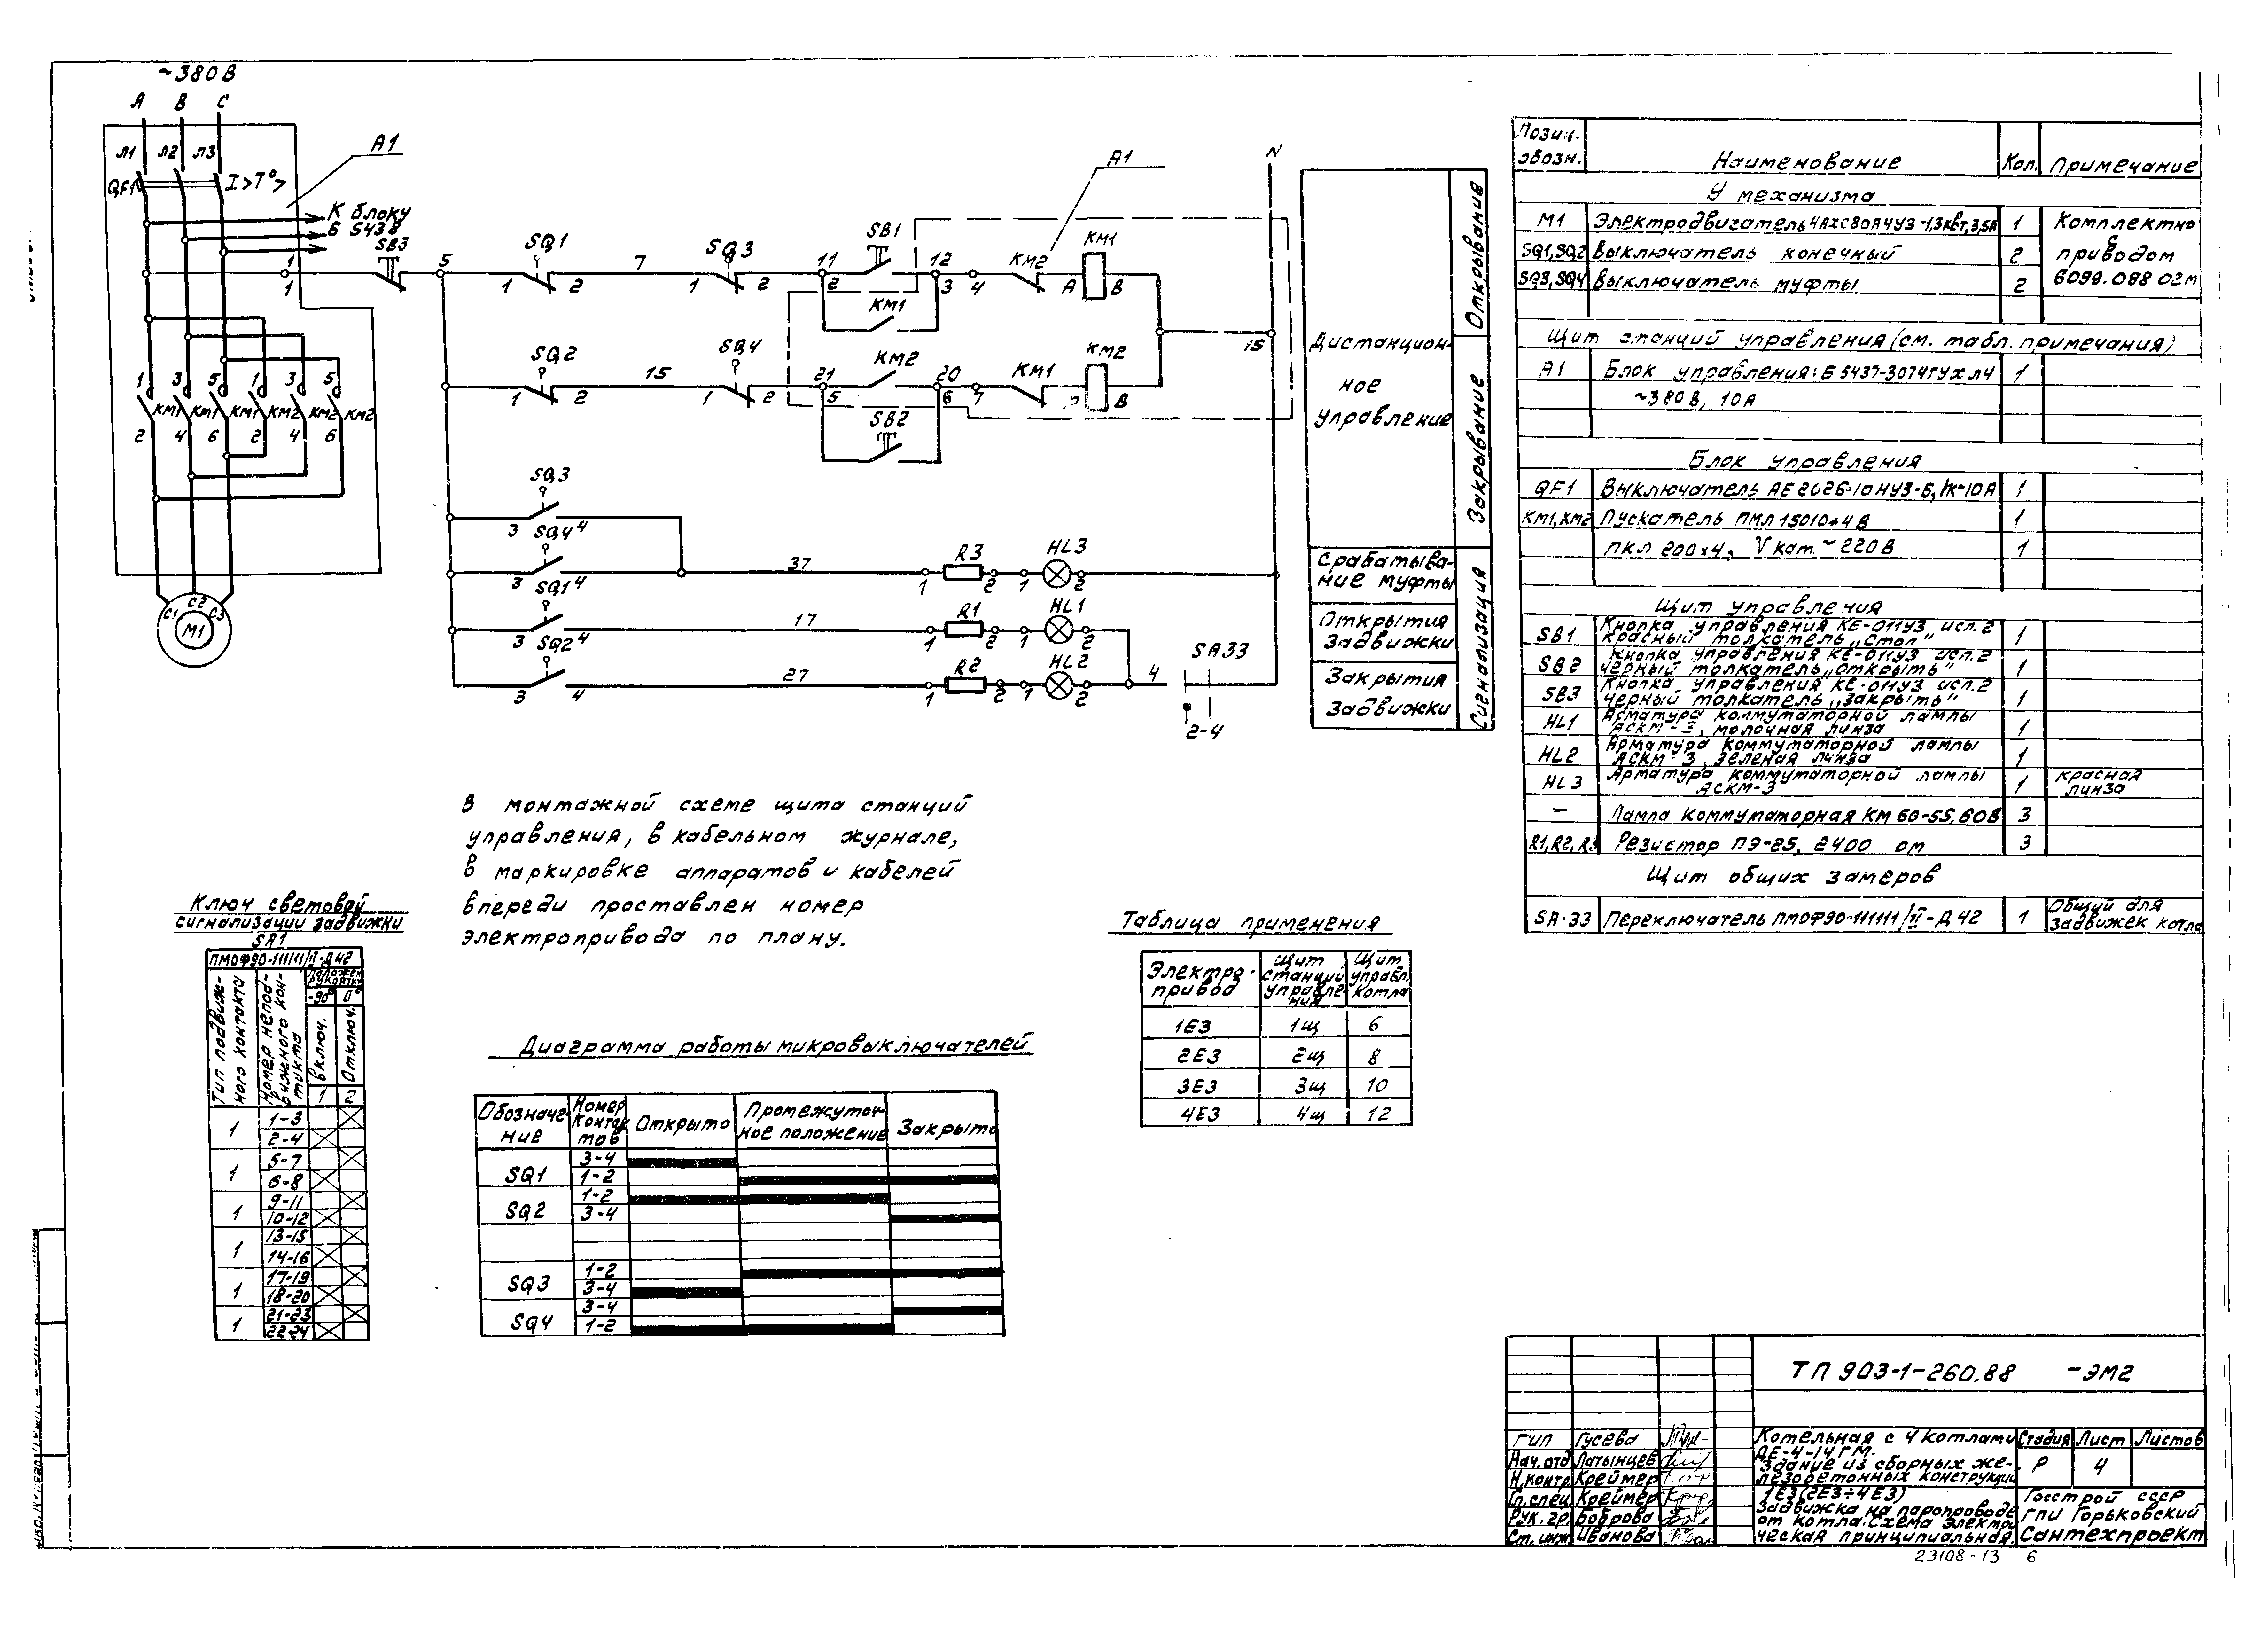 ~380 В
А В С
Л1 Л2 Л3
QF1
I>T°>
А1
К блоку
Б 5438
SB3
1
1
5
SQ1
1 2
7
SQ3
1 2
11
2
SB1
12
3
4
КМ1
КМ2
А1
КМ1
А В
N
15
SQ2
1 2
15
SQ4
1 2
21
5
КМ2
20
6
7
КМ1
КМ2
В
SB2
1 3 5 1 3 5
КМ1 КМ1 КМ1 КМ2 КМ2 КМ2
2 4 6 2 4 6
С1 С2 С3
М1
SQ3
3 4
SQ4
3 4
37
1 R3 2 1 HL3 2
SQ1
3 4
17
1 R1 2 1 HL1 2
SQ2
3 4
27
1 R2 2 1 HL2 2
4
SA33
2-4
Дистанцион-
ное
управление
Открывание
Закрывание
Срабатыва-
ние муфты
Открытия
задвижки
Закрытия
задвижки
Сигнализация
В монтажной схеме щита станций
управления, в кабельном журнале,
в маркировке аппаратов и кабелей
впереди проставлен номер
электропривода по плану.
Ключ световой
сигнализации задвижки
SA1
ПМОФ90-111111/II-Д42
Тип подвиж-
ного контакта
Номер непод-
вижного кон-
такта
Положен.
рукоятки
-90° 0°
Включ. Отключ.
1 2
1 1-3
2-4
1 5-7
6-8
1 9-11
10-12
1 13-15
14-16
1 17-19
18-20
1 21-23
22-24
Диаграмма работы микровыключателей
Обозначе-
ние
Номер
контак
тов
Открыто
Промежуточ-
ное положение
Закрыто
SQ1 3-4
1-2
SQ2 1-2
3-4
SQ3 1-2
3-4
SQ4 3-4
1-2
Таблица применения
Электро-
привод
Щит
станций
управле-
ния
Щит
управл.
котла
1Е3 1щ 6
2Е3 2щ 8
3Е3 3щ 10
4Е3 4щ 12
Позиц.
обозн. Наименование Кол. Примечание
У механизма
М1 Электродвигатель 4АХС80А4У3-1,3кВт, 3,5А 1 Комплектно
с
SQ1,SQ2 Выключатель конечный 2 приводом
SQ3,SQ4 Выключатель муфты 2 6099.098 02м
Щит станций управления (см. табл. примечания)
А1 Блок управления: Б 5437-3074ГУХЛ4 1
~380 В, 10А
Блок управления
QF1 Выключатель АЕ2026-10НУ3-Б, 10А 1
КМ1, КМ2 Пускатель ПМЛ 15010*4В 1
ПКЛ 200х4, Vкат. ~220В 1
Щит управления
SB1 Кнопка управления КЕ-011У3 исп.2
красный толкатель „Стоп" 1
SB2 Кнопка управления КЕ-011У3 исп.2
черный толкатель „открыть" 1
SB3 Кнопка управления КЕ-011У3 исп.2
черный толкатель „закрыть" 1
HL1 Арматура коммутаторной лампы
АСКМ-3, молочная линза 1
HL2 Арматура коммутаторной лампы
АСКМ-3, зеленая линза 1
HL3 Арматура коммутаторной лампы
АСКМ-3 1 красная
линза
— Лампа коммутаторная КМ 60-55, 60В 3
R1, R2, R3 Резистор ПЭ-25, 2400 ом 3
Щит общих замеров
SA-33 Переключатель ПМОФ90-111111/II-Д42 1 Общий для
задвижек котла
ТП 903-1-260.88 -ЭМ2
ГИП Гусева
Нач.отд Латынцев
Н.контр. Креймер
Гл.спец. Креймер
Рук.гр. Боброва
Ст.инж. Иванова
Котельная с 4 котлами
ДЕ-4-14ГМ.
Здание из сборных же-
лезобетонных конструкций
Стадия Лист Листов
Р 4
1Е3 (2Е3÷4Е3)
Задвижка на паропроводе
от котла. Схема электри
ческая принципиальная.
Госстрой СССР
ГПИ Горьковский
Сантехпроект
23108-13 6